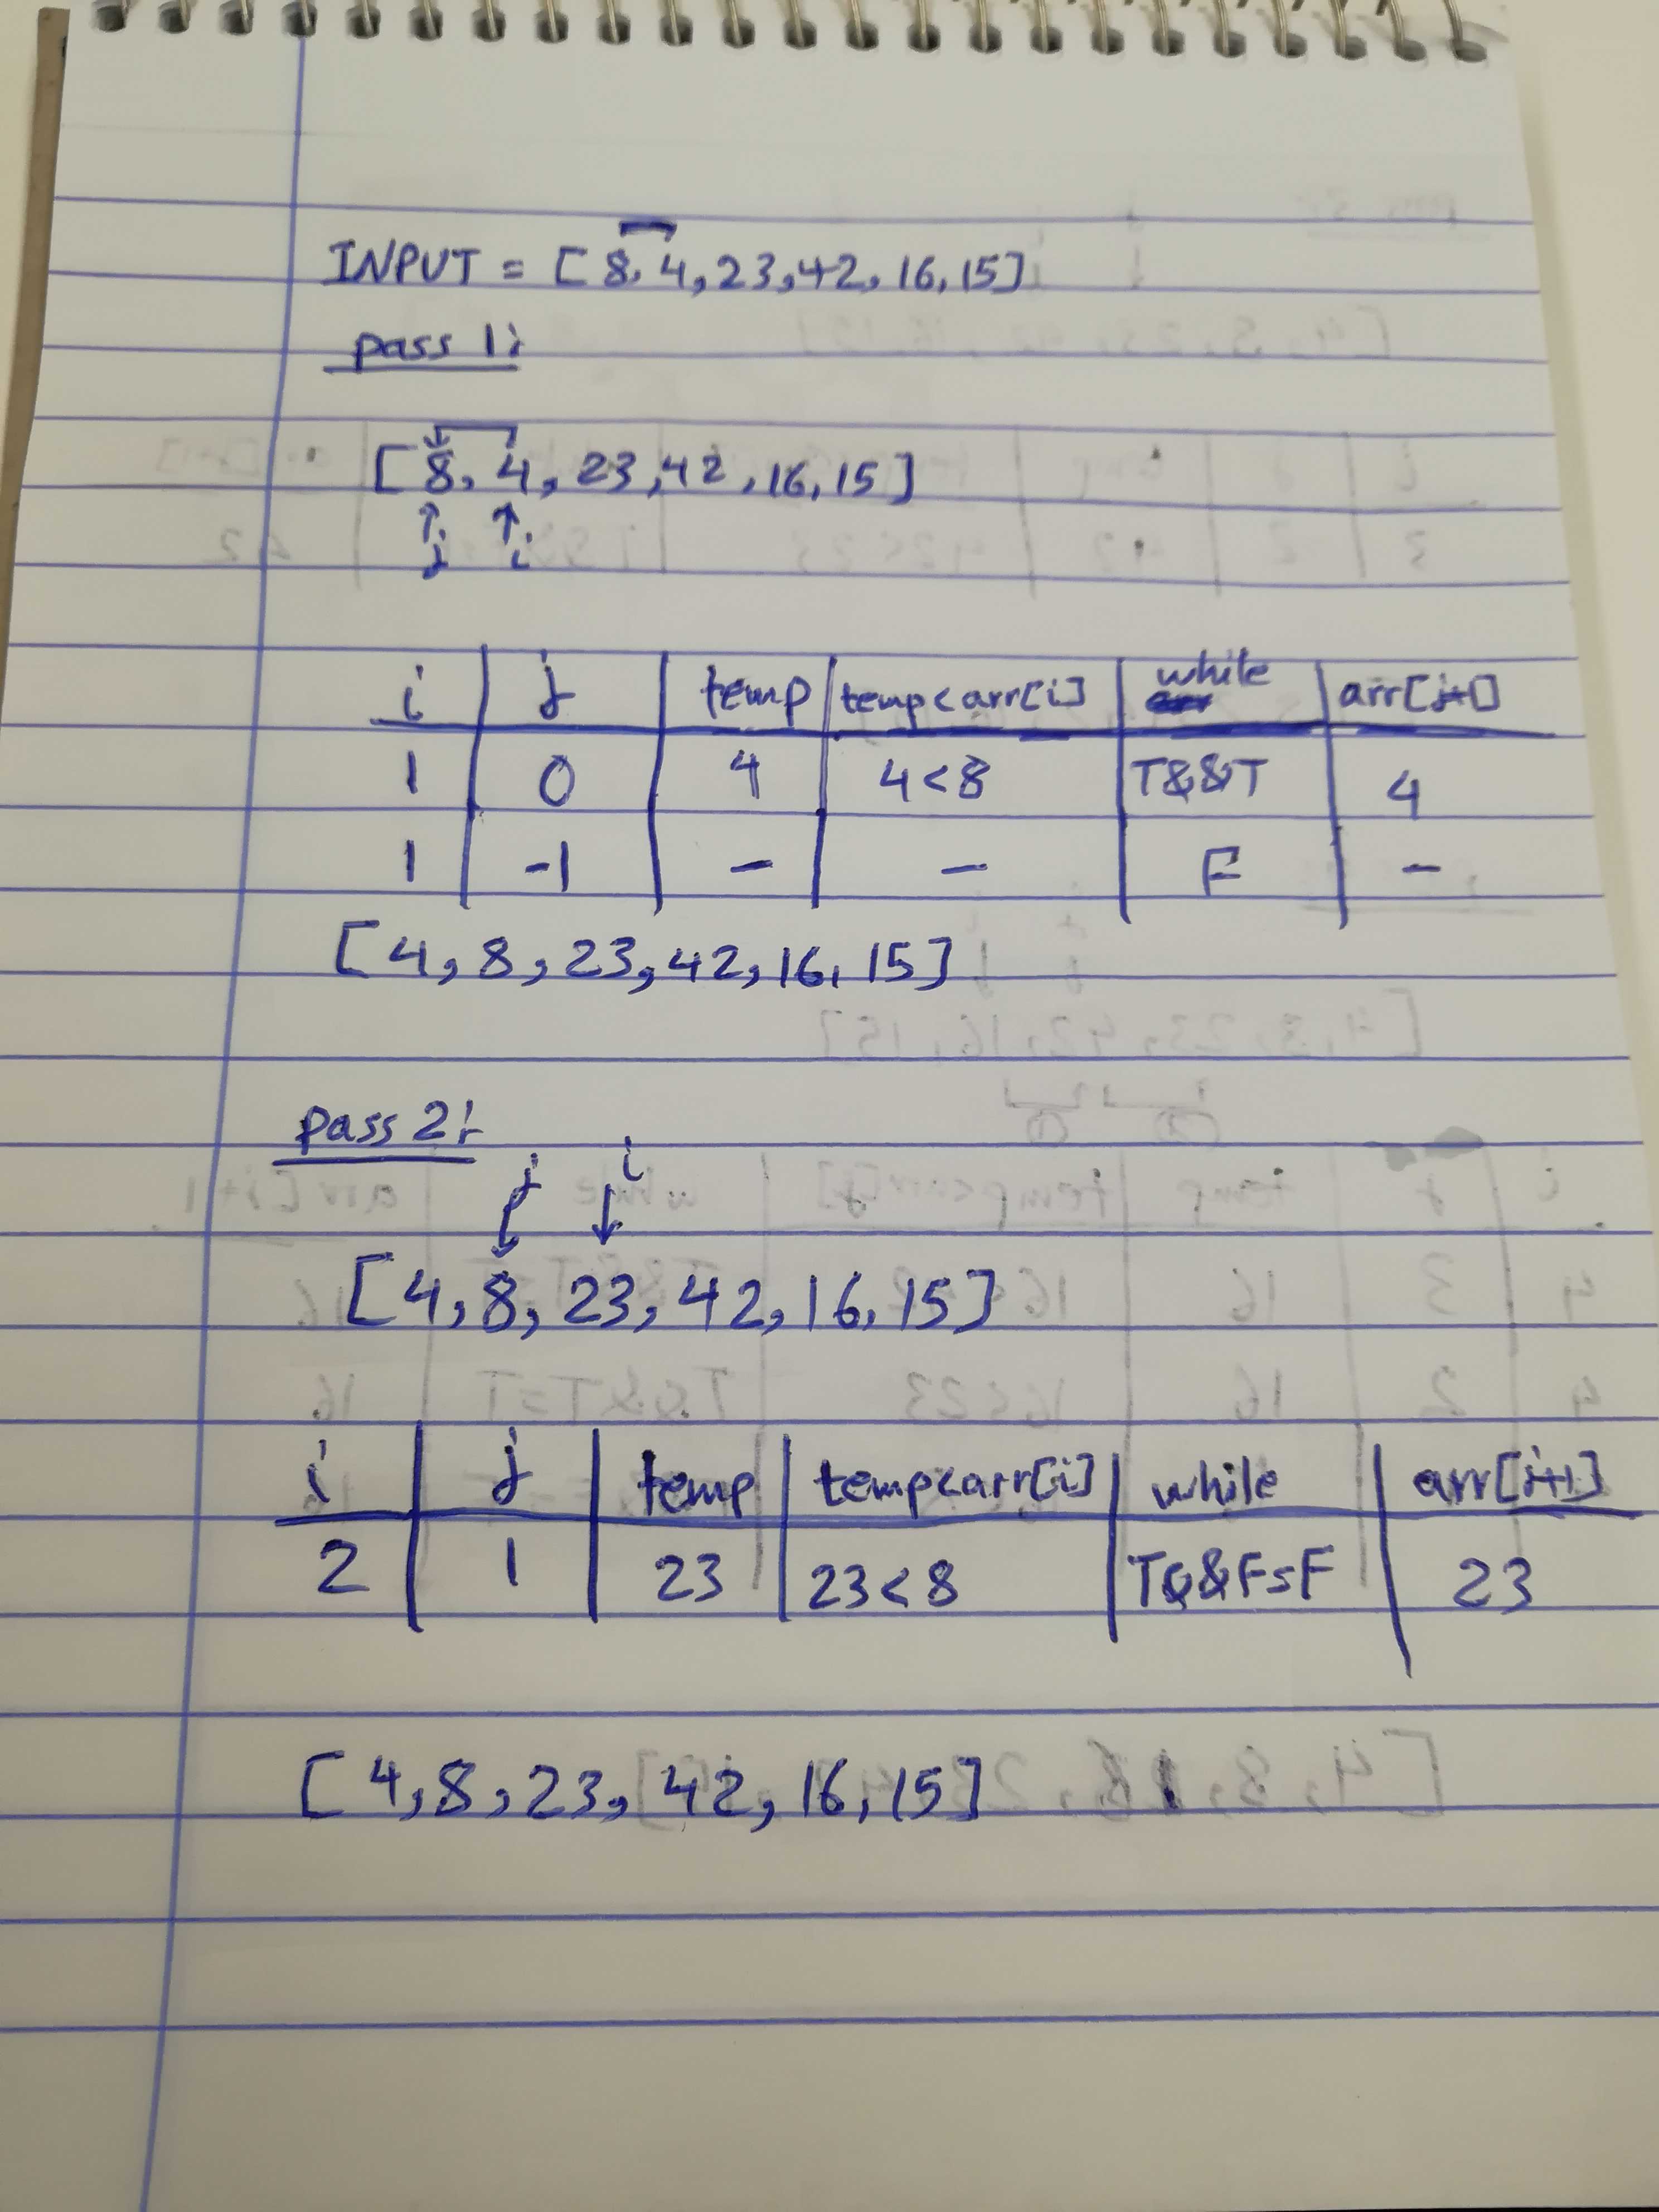 INPUT = [8, 4, 23, 42, 16, 15]
pass 1:
[8, 4, 23, 42, 16, 15]
j i
i j temp temp<arr[i] while arr[j+1]
1 0 4 4<8 T&&T 4
1 -1 - - F -
[4, 8, 23, 42, 16, 15]
pass 2:
j i
[4, 8, 23, 42, 16, 15]
i j temp temp<arr[i] while arr[j+1]
2 1 23 23<8 T&&F=F 23
[4, 8, 23, 42, 16, 15]